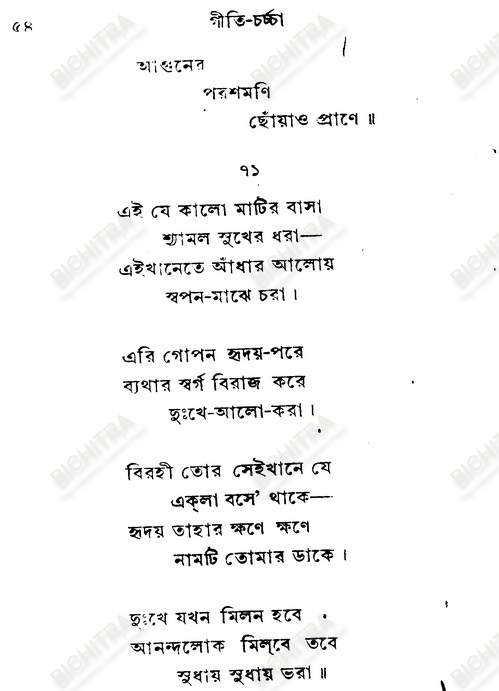 ৫৪
গীতি-চর্চ্চা
আগুনের
পরশমণি
ছোঁয়াও প্রাণে ॥
৭১
এই যে কালো মাটির বাসা
শ্যামল সুখের ধরা—
এইখানেতে আঁধার আলোয়
স্বপন-মাঝে চরা ।
এরি গোপন হৃদয়-পরে
ব্যথার স্বর্গ বিরাজ করে
দুঃখে-আলো-করা ।
বিরহী তোর সেইখানে যে
এক্‌লা বসে’ থাকে—
হৃদয় তাহার ক্ষণে ক্ষণে
নামটি তোমার ডাকে ।
দুঃখে যখন মিলন হবে
আনন্দলোক মিল্‌বে তবে
সুধায় সুধায় ভরা ॥
BICHITRA